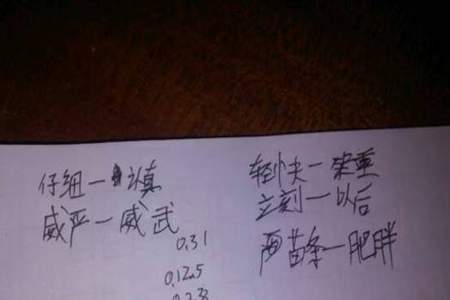 仔细—认真
威严—威武
0.31
0.125
轻快—笨重
立刻—以后
苗条—肥胖